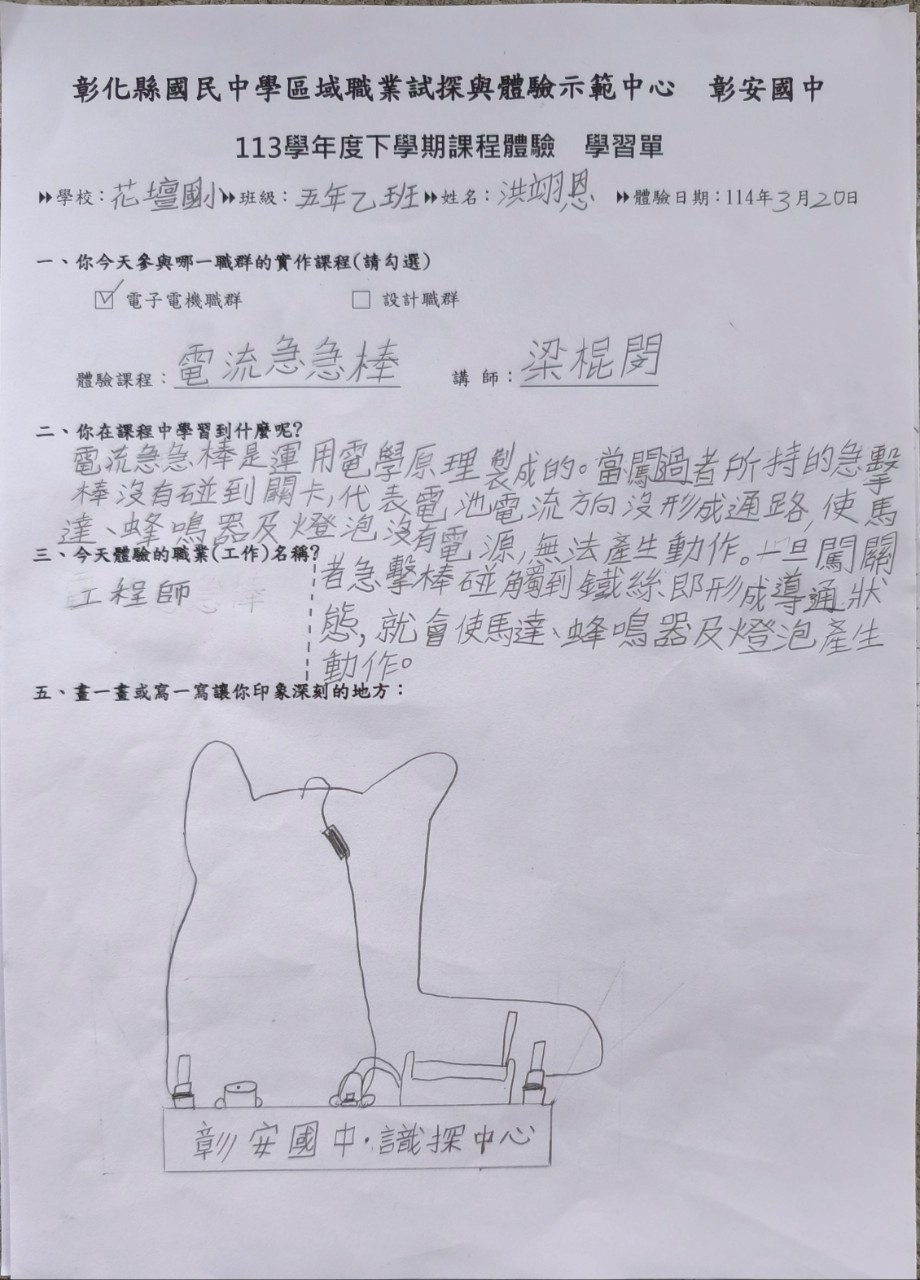 彰化縣國民中學區域職業試探與體驗示範中心　彰安國中
113學年度下學期課程體驗　學習單
學校：花壇國小 班級：五年乙班 姓名：洪翊恩 體驗日期：114年3月20日
一、你今天參與哪一職群的實作課程(請勾選)
☑ 電子電機職群　☐ 設計職群
體驗課程：電流急急棒　講師：梁棍閔
二、你在課程中學習到什麼呢?
電流急急棒是運用電學原理製成的。當闖過者所持的急擊
棒沒有碰到關卡,代表電池電流方向沒形成通路,使馬
達、蜂鳴器及燈泡沒有電源,無法產生動作。一旦闖關
者急擊棒碰觸到鐵絲即形成導通狀
態,就會使馬達、蜂鳴器及燈泡產生
動作。
三、今天體驗的職業(工作)名稱?
工程師
五、畫一畫或寫一寫讓你印象深刻的地方：
彰安國中·識探中心